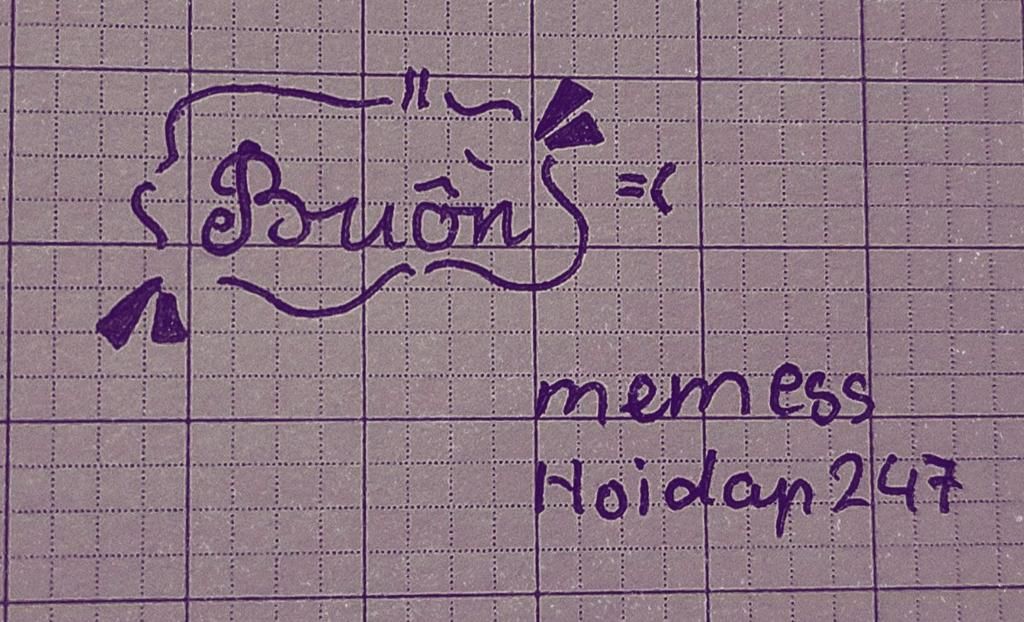 Buồn =(
memess
Hoidap247